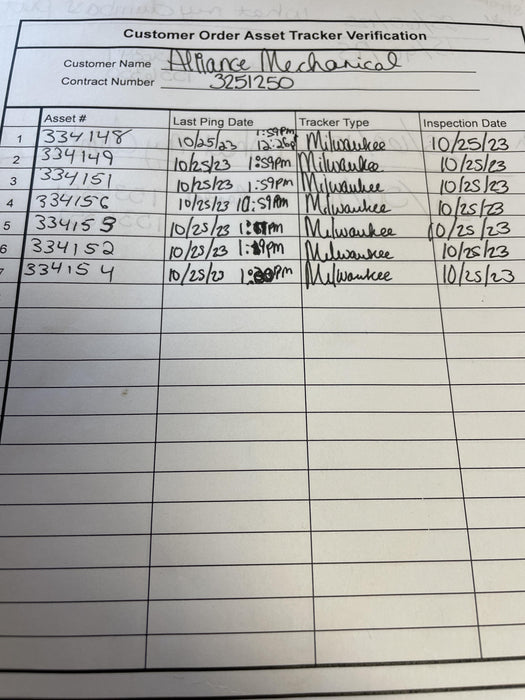 Customer Order Asset Tracker Verification
Customer Name Alliance Mechanical
Contract Number 3251250
Asset # Last Ping Date Tracker Type Inspection Date
1 334148 10/25/23 1:59pm Milwaukee 10/25/23
2 334149 10/25/23 1:59pm Milwaukee 10/25/23
3 334151 10/25/23 1:59pm Milwaukee 10/25/23
4 334156 10/25/23 10:59Am Milwaukee 10/25/23
5 334153 10/25/23 Milwaukee 10/25/23
6 334152 10/25/23 Milwaukee 10/25/23
7 334154 10/25/23 Milwaukee 10/25/23